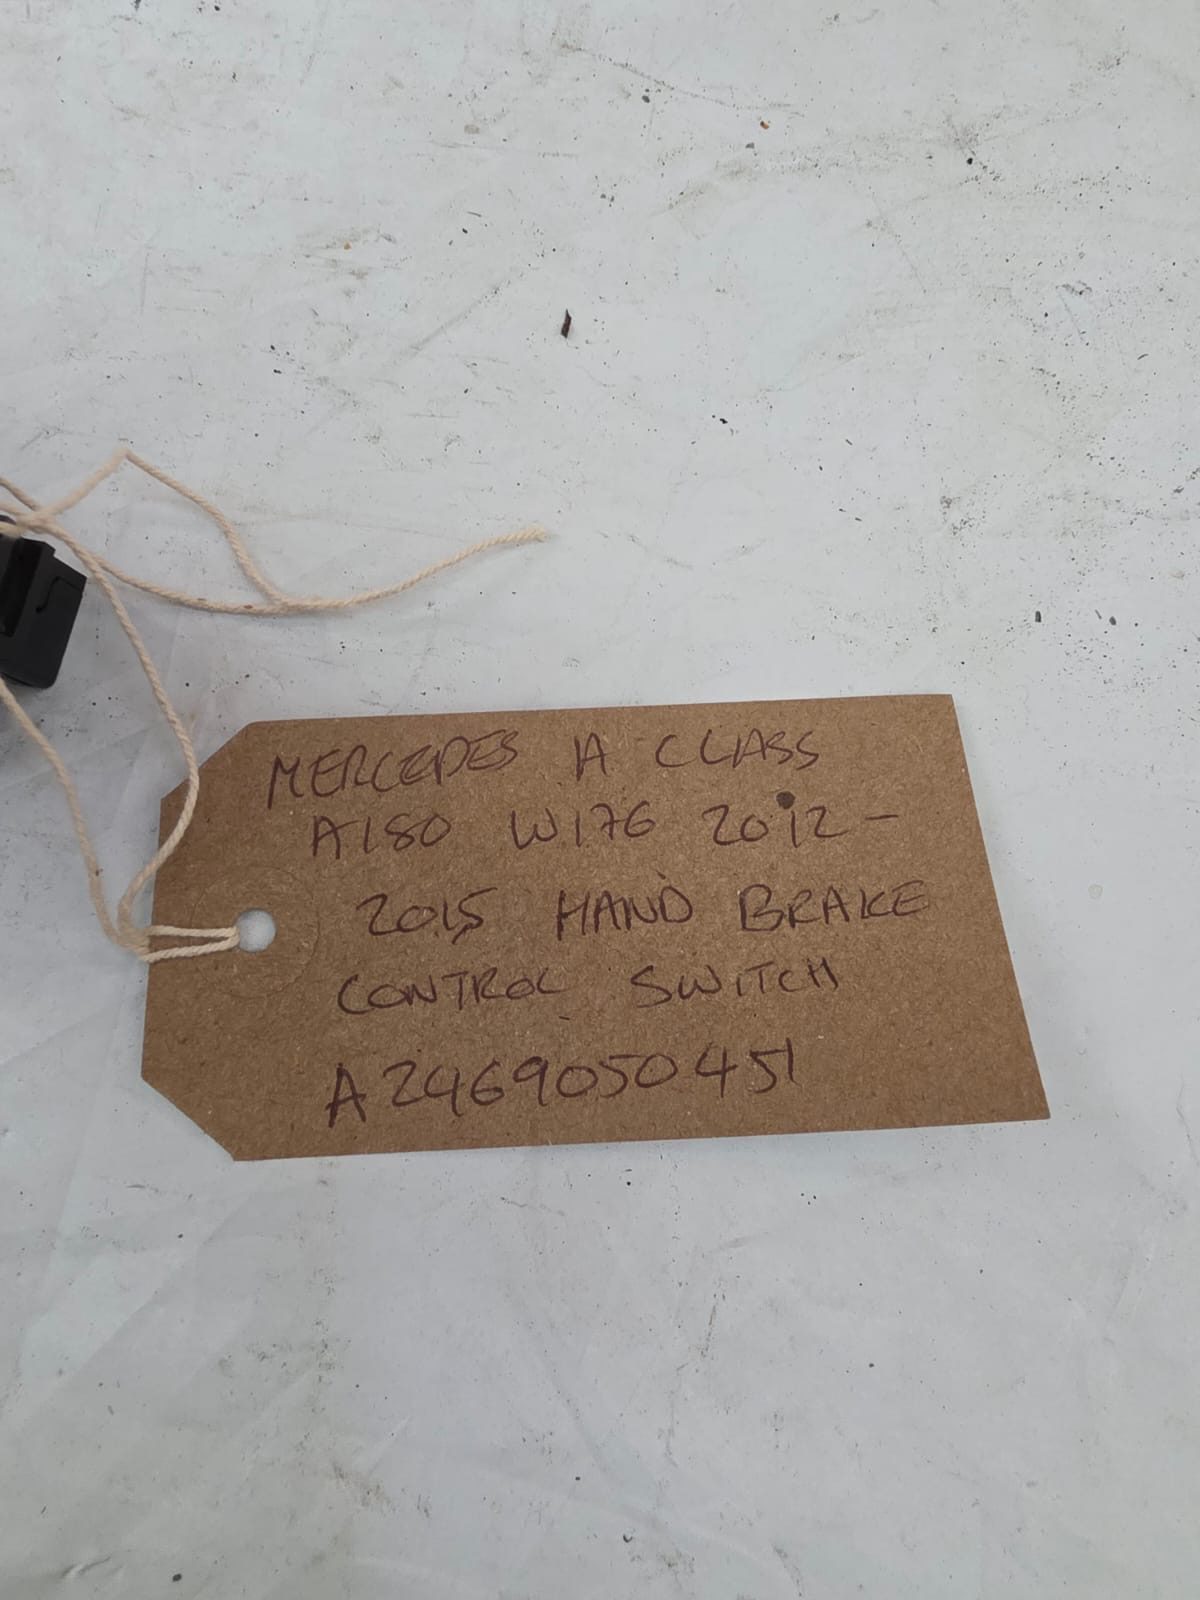 MERCEDES A CLASS
A180 W176 2012 -
2015 HAND BRAKE
CONTROL SWITCH
A2469050451